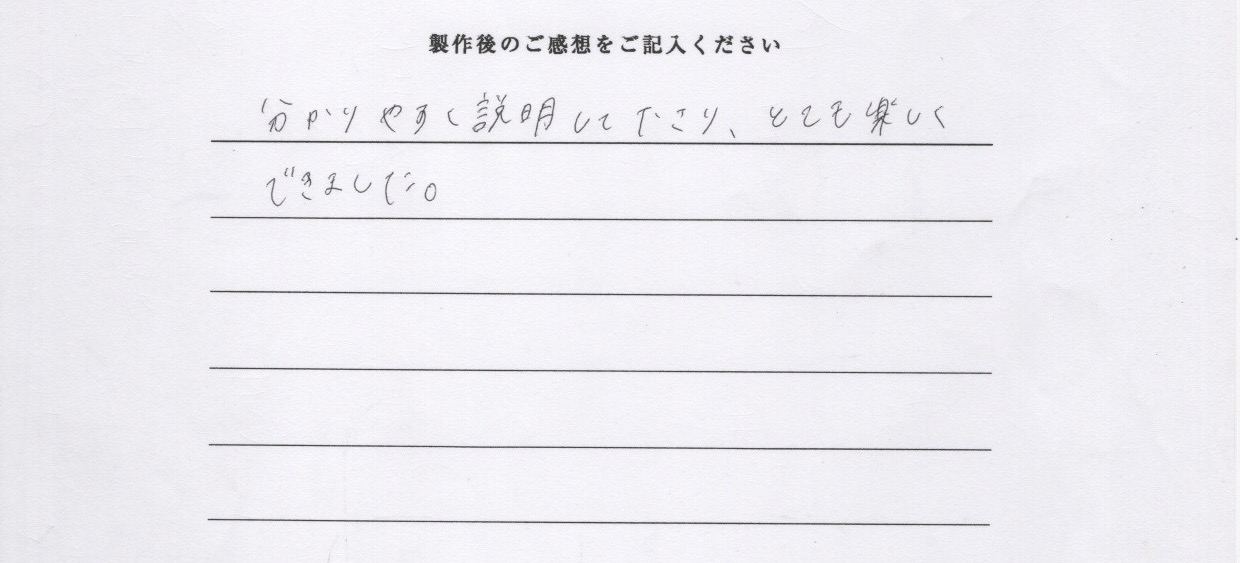 製作後のご感想をご記入ください
分かりやすく説明して下さり、とても楽しく
できました。